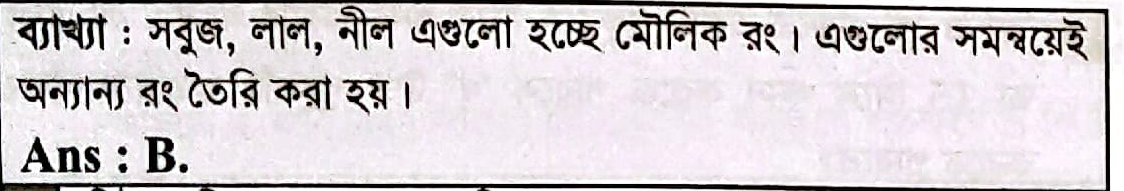 ব্যাখ্যা : সবুজ, লাল, নীল এগুলো হচ্ছে মৌলিক রং। এগুলোর সমন্বয়েই
অন্যান্য রং তৈরি করা হয়।
Ans : B.